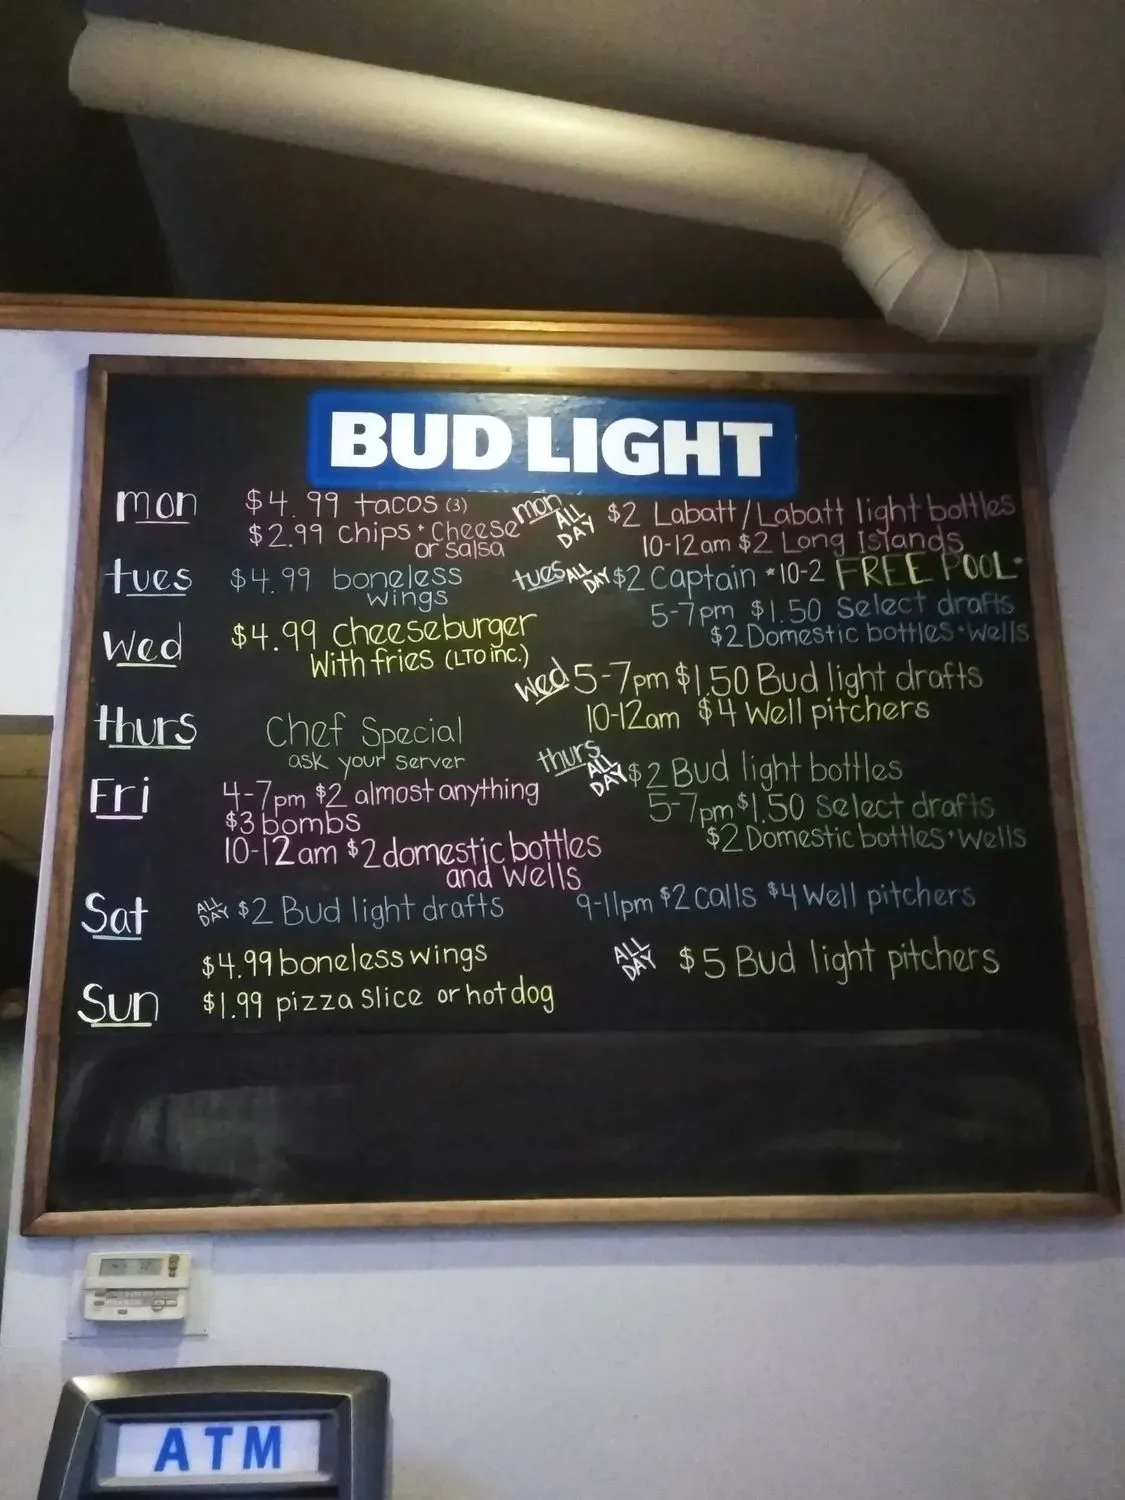 BUD LIGHT
mon $4.99 tacos (3)
$2.99 chips + cheese
or salsa
mon ALL DAY $2 Labatt/Labatt light bottles
10-12am $2 Long Islands
tues $4.99 boneless
wings
tues ALL DAY $2 Captain *10-2 FREE POOL*
5-7pm $1.50 Select drafts
$2 Domestic bottles + wells
Wed $4.99 cheeseburger
With fries (LTO inc.)
Wed 5-7pm $1.50 Bud light drafts
10-12am $4 Well pitchers
thurs Chef Special
ask your server
thurs ALL DAY $2 Bud light bottles
5-7pm $1.50 Select drafts
$2 Domestic bottles + wells
Fri 4-7pm $2 almost anything
$3 bombs
10-12am $2 domestic bottles
and wells
Sat ALL DAY $2 Bud light drafts 9-11pm $2 calls $4 Well pitchers
$4.99 boneless wings
Sun $1.99 pizza slice or hot dog
ALL DAY $5 Bud light pitchers
ATM